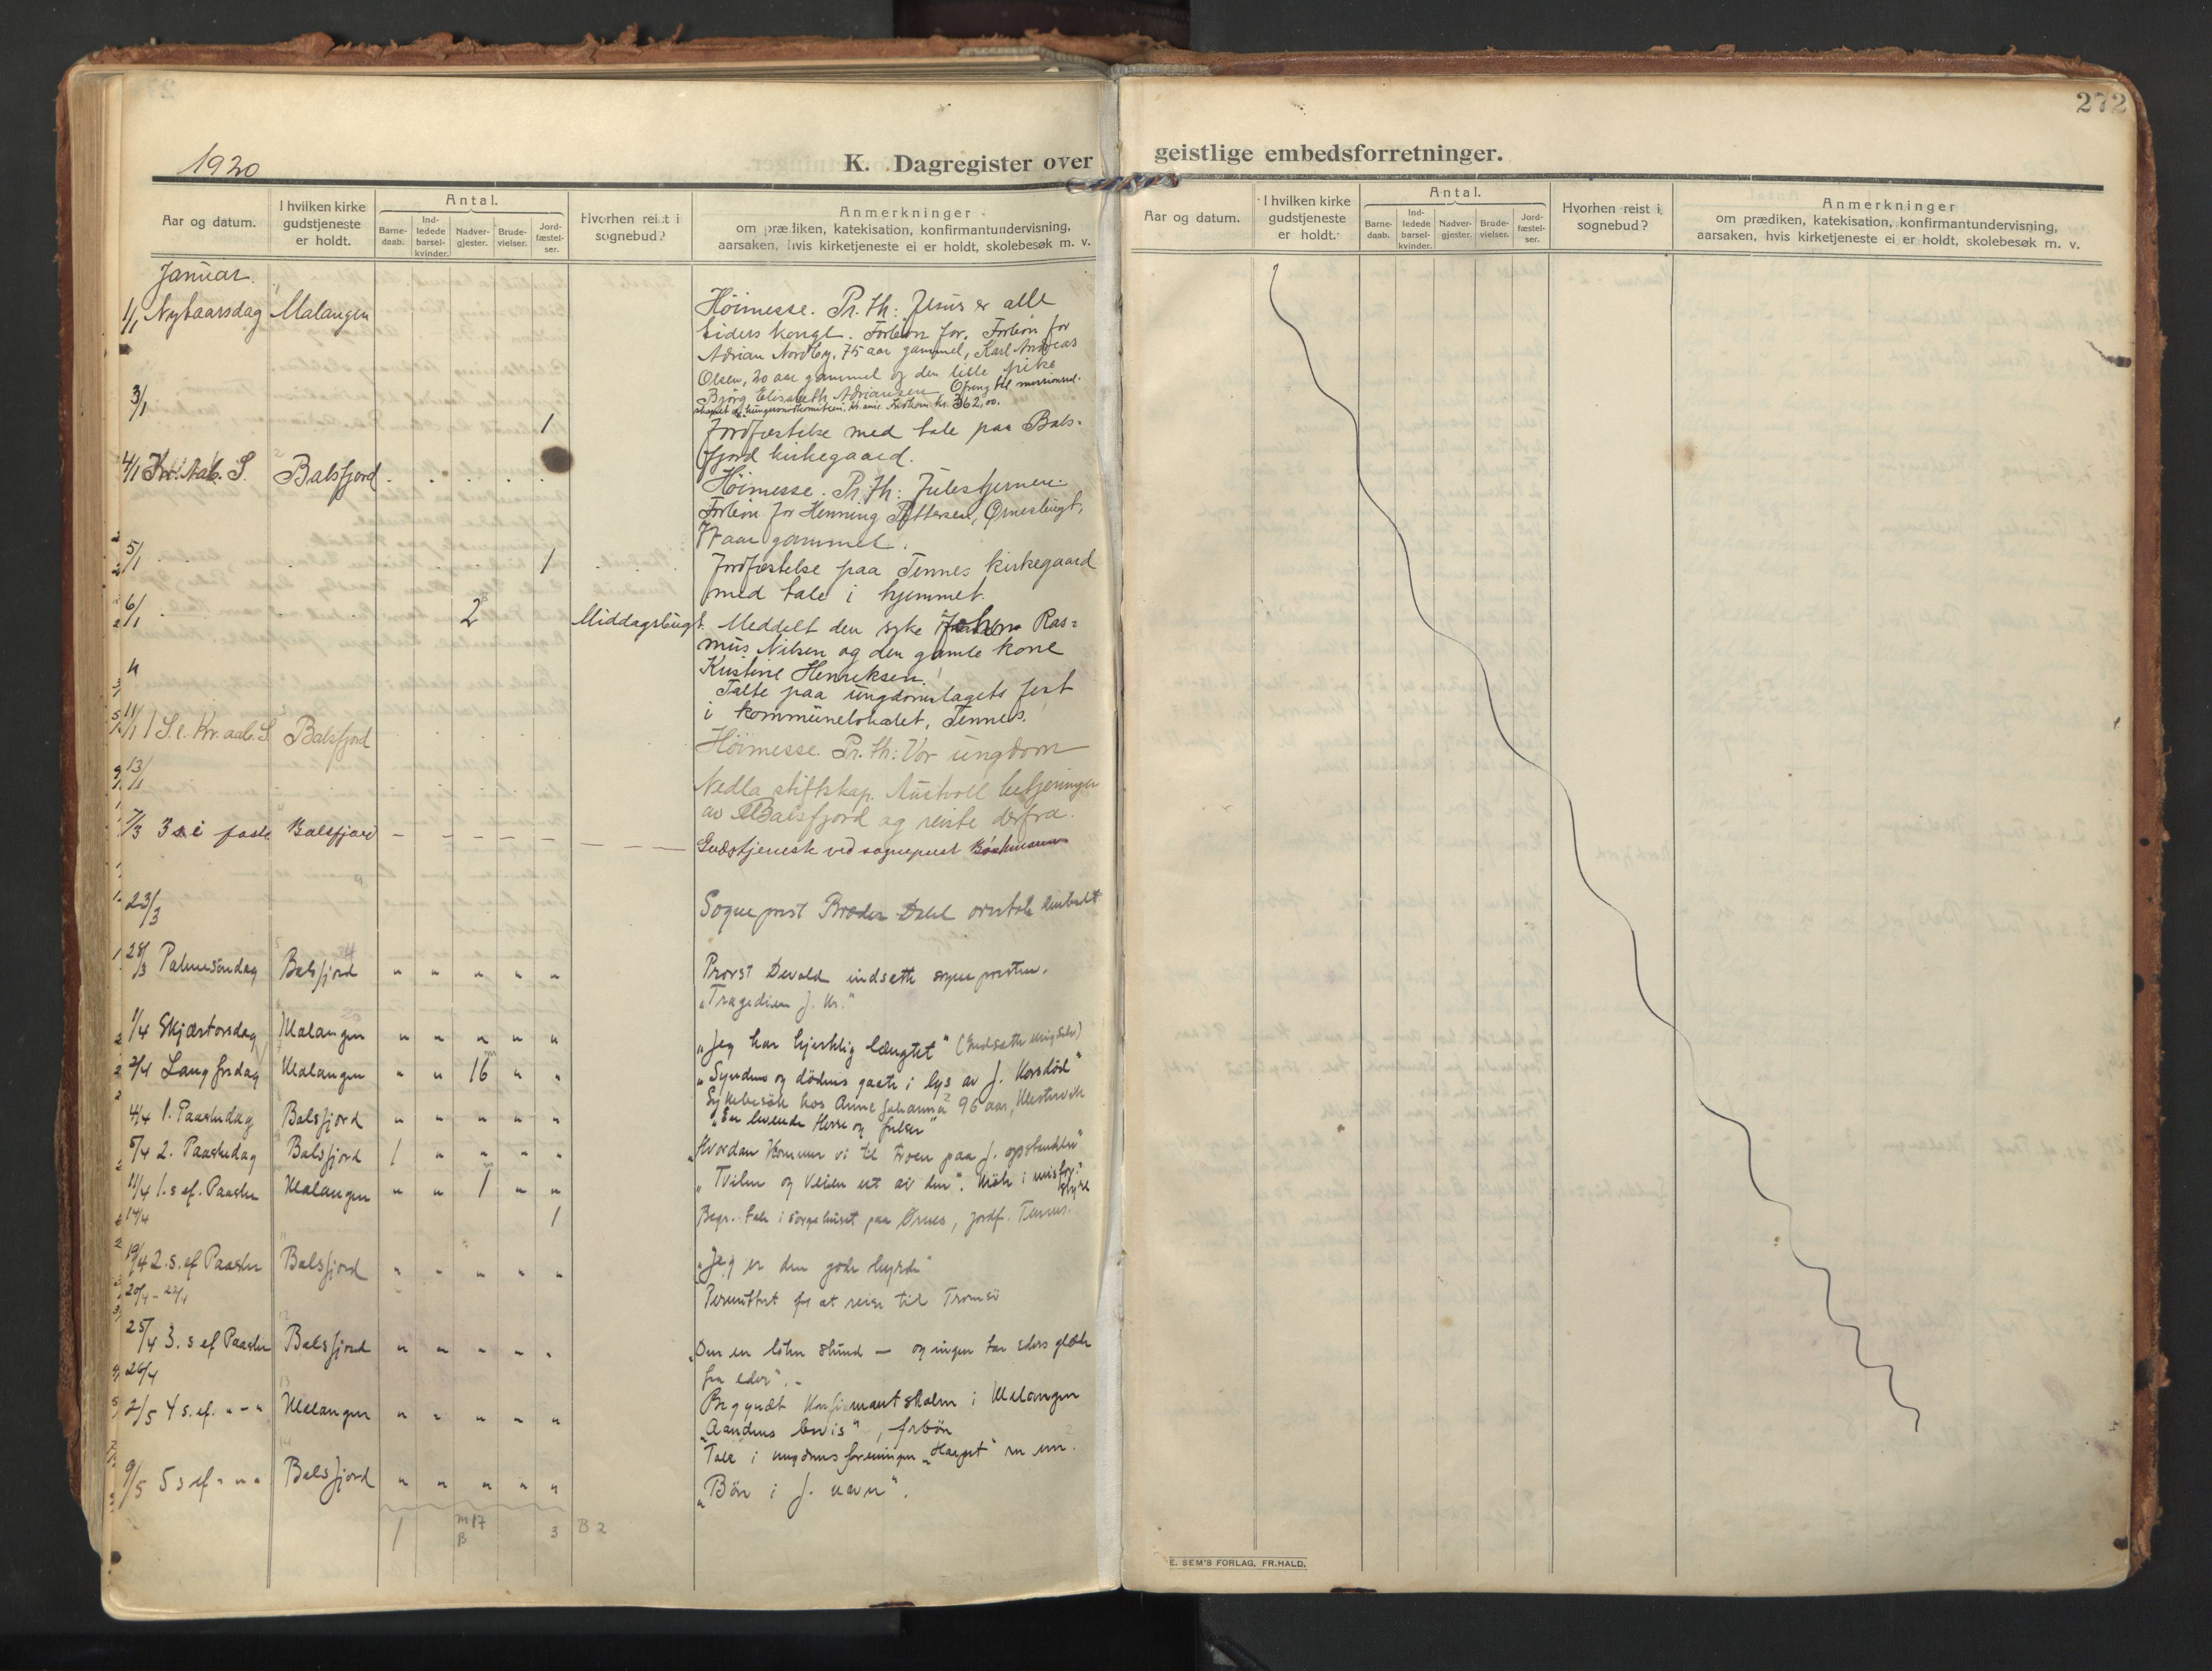 272
1920
K. Dagregister over geistlige embedsforretninger.
Aar og datum. I hvilken kirke gudstjeneste er holdt. Antal. Barnedaab. Indledede barselkvinder. Nadvergjester. Brudevielser. Jordfæstelser. Hvorhen reist i sognebud? Anmerkninger om prædiken, katekisation, konfirmantundervisning, aarsaken, hvis kirketjeneste ei er holdt, skolebesøk m. v.
Aar og datum. I hvilken kirke gudstjeneste er holdt. Antal. Barnedaab. Indledede barselkvinder. Nadvergjester. Brudevielser. Jordfæstelser. Hvorhen reist i sognebud? Anmerkninger om prædiken, katekisation, konfirmantundervisning, aarsaken, hvis kirketjeneste ei er holdt, skolebesøk m. v.
Januar.
1/1 Nytaarsdag Malangen Høimesse. Pr. th: Jesus er alle
tiders konge. Forbøn for. Forbøn for
Adrian Nordby, 75 aar gammel, Karl Andreas
Olsen, 20 aar gammel og den lille pike
Bjørg Elisabeth Adriansen. Ofring til missionssel-
skapet og kr. 362,00.
3/1 1 Jordfæstelse med tale paa Bals-
fjord kirkegaard.
4/1 Kr. aab. S. Balsfjord Høimesse. Pr. th: Julestjernen.
Forbøn for Henning Pettersen, Ørnesbugt,
77 aar gammel.
5/1 1 Jordfæstelse paa Tennes kirkegaard
med tale i hjemmet.
6/1 2 Middagsbugt. Meddelt den syke Johan Ras=
mus Nilsen og den gamle kone
Kristine Henriksen.
" Talte paa ungdomslagets fest
i kommunelokalet, Tennes.
11/1 1 S. e. Kr. aab. S. Balsfjord Høimesse. Pr. th: Vor ungdom
13/1 Nedla stiftskap. Austvoll betjeningen
av Balsfjord og reiste derfra.
7/3 3 s i faste Balsfjord – – – – – Gudstjeneste ved sogneprest Bøckmann
23/3 Sogneprest Broder Dahl overtok embedet
28/3 Palmesøndag Balsfjord " " " " " Provst Devold indsatte sognepresten.
"Tragedien J. Kr."
1/4 Skjærtorsdag Malangen " " " " " "Jeg har hjertelig længtet" (Indsatte mig selv)
2/4 Langfredag Malangen " " 16 " " "Syndens og dødens gaate i lys av J. Korsdød"
Sykebesøk hos Anne Johanna 96 aar, Mestervik
4/4 1. Paaskedag Balsfjord " " " " " "En levende Herre og frelser"
5/4 2. Paaskedag Balsfjord 1 " " " " "Hvordan kommer vi til troen paa J. opstandelse"
11/4 1. s ef. Paaske Malangen " " 1 " " "Tvilen og veien ut av den". Møte i
14/4 1 Begr. tale i sørgehuset paa Ørnes, jordf. Tennes.
19/4 2. s. ef Paaske Balsfjord " " " " " "Jeg er den gode hyrde"
20/4 – Permittert for at reise til Tromsø
25/4 3. s ef Paaske Balsfjord " " " " " "Om en liten stund — og ingen tar eders glæde
fra eder". -
26/4 Begyndt Konfirmantskolen i Malangen
2/5 4 s. ef. " – " Malangen " " " " " "Aandens bevis", forbøn
Tale i ungdomsforeningen "Haapet"
9/5 5 s ef " " " Balsfjord " " " " " "Bøn i J. navn".
1 m 17 B 3 B 2
E. SEM'S FORLAG, FR.HALD.